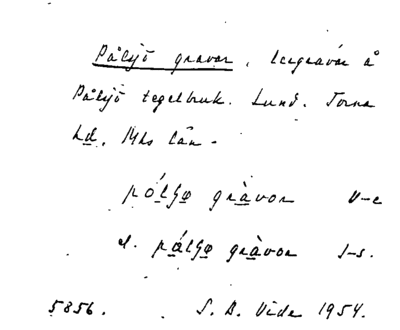 Påljö gravar, lergravar å
Påljö tegelbruk. Lund. Torna
hd. Mhs län.
pólʝo gràvor v-e
el. pálʝo gràvor s-s.
5856. S. B. Vide 1954.